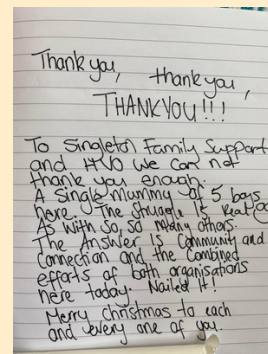 Thank you, thank you,
THANKYOU!!!
To Singleton Family Support
and HVO we can not
thank you enough.
A single mummy of 5 boys
here. The struggle is real
As with so, so many others.
The Answer is Community and
connection and the combined
efforts of both organisations
here today. Nailed it!
Merry christmas to each
and every one of you.